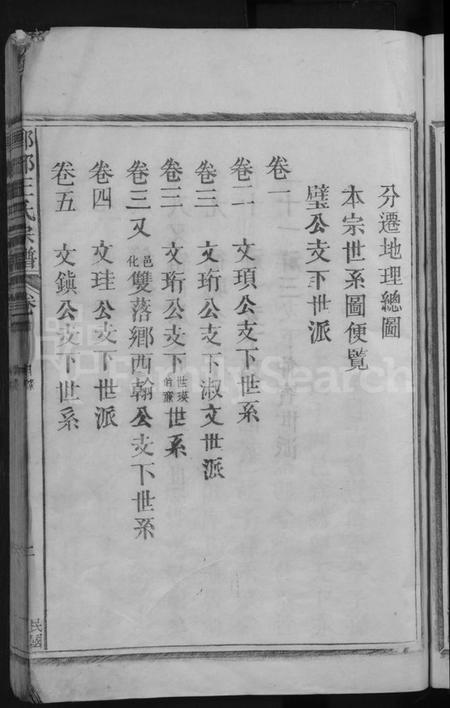 分遷地理總圖
本宗世系圖便覧
璧公支下世派
卷一
卷二 文項公支下世系
卷三 文珩公支下淑文世派
卷三 文珩公支下世瑛世系
卷三又 邑化雙落鄉西翰公支下世系
卷四 文珪公支下世派
卷五 文鎮公支下世系
王氏宗譜 卷
民國
FamilySearch